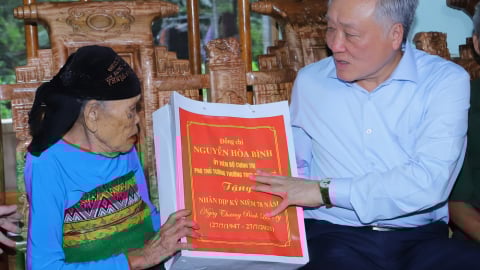 Đồng chí
NGUYỄN HÒA BÌNH
ỦY VIÊN BỘ CHÍNH TRỊ
PHÓ THỦ TƯỚNG THƯỜNG TRỰC
Tặng
NHÂN DỊP KỶ NIỆM 78 NĂM
Ngày Thương Binh
(27/7/1947 - 27/7/2025)